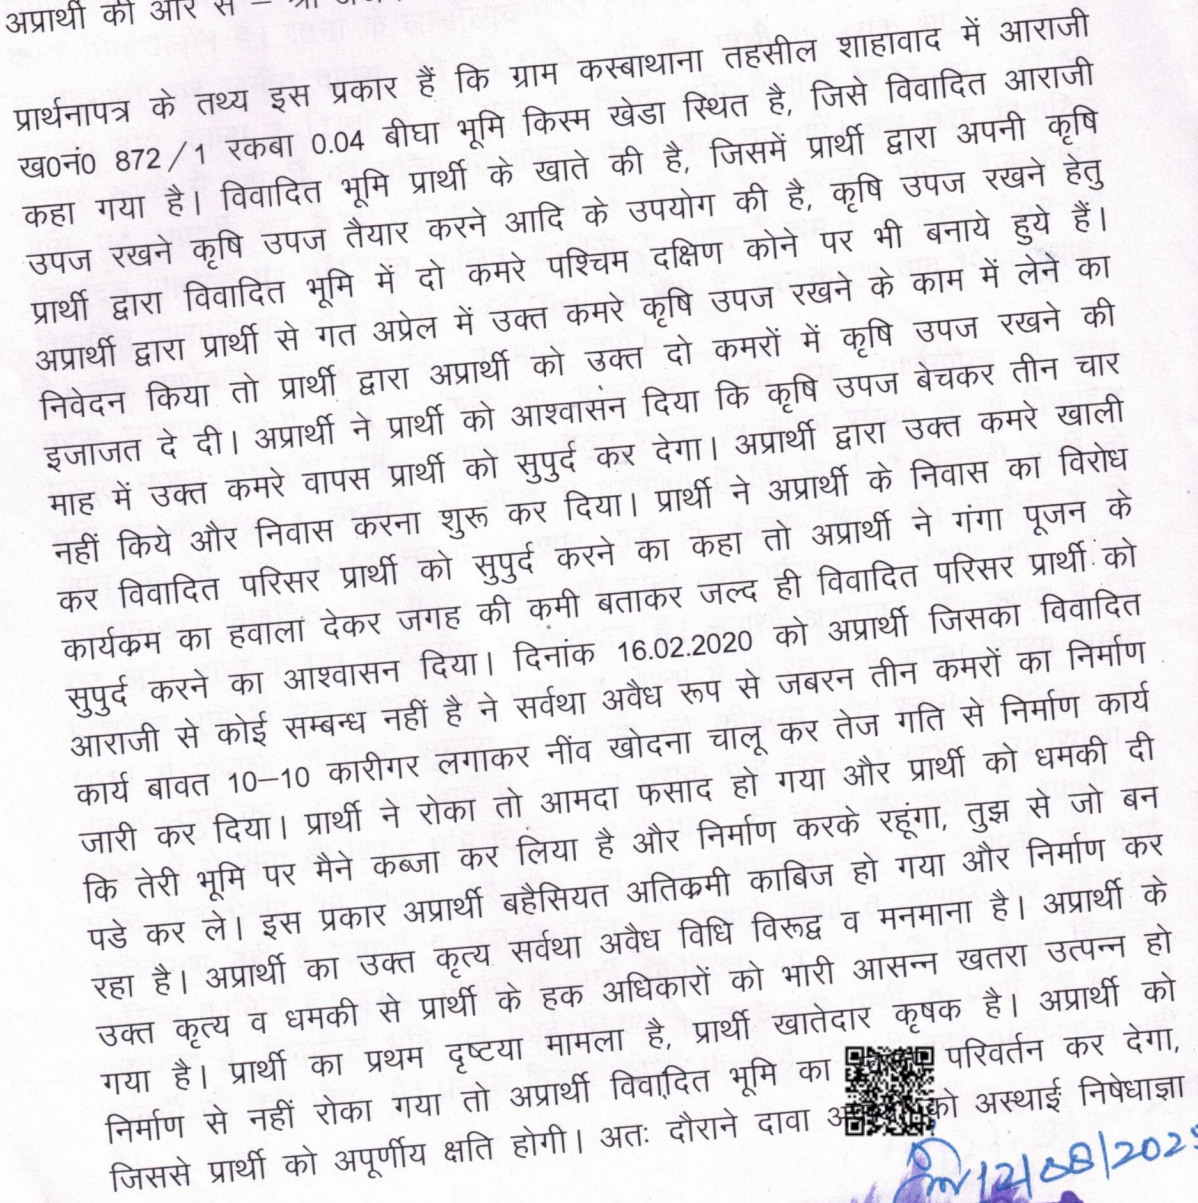 अप्रार्थी की ओर से – श्री
प्रार्थनापत्र के तथ्य इस प्रकार हैं कि ग्राम कस्बाथाना तहसील शाहावाद में आराजी
ख0नं0 872/1 रकबा 0.04 बीघा भूमि किस्म खेडा स्थित है, जिसे विवादित आराजी
कहा गया है। विवादित भूमि प्रार्थी के खाते की है, जिसमें प्रार्थी द्वारा अपनी कृषि
उपज रखने कृषि उपज तैयार करने आदि के उपयोग की है, कृषि उपज रखने हेतु
प्रार्थी द्वारा विवादित भूमि में दो कमरे पश्चिम दक्षिण कोने पर भी बनाये हुये हैं।
अप्रार्थी द्वारा प्रार्थी से गत अप्रेल में उक्त कमरे कृषि उपज रखने के काम में लेने का
निवेदन किया तो प्रार्थी द्वारा अप्रार्थी को उक्त दो कमरों में कृषि उपज रखने की
इजाजत दे दी। अप्रार्थी ने प्रार्थी को आश्वासन दिया कि कृषि उपज बेचकर तीन चार
माह में उक्त कमरे वापस प्रार्थी को सुपुर्द कर देगा। अप्रार्थी द्वारा उक्त कमरे खाली
नहीं किये और निवास करना शुरू कर दिया। प्रार्थी ने अप्रार्थी के निवास का विरोध
कर विवादित परिसर प्रार्थी को सुपुर्द करने का कहा तो अप्रार्थी ने गंगा पूजन के
कार्यक्रम का हवाला देकर जगह की कमी बताकर जल्द ही विवादित परिसर प्रार्थी को
सुपुर्द करने का आश्वासन दिया। दिनांक 16.02.2020 को अप्रार्थी जिसका विवादित
आराजी से कोई सम्बन्ध नहीं है ने सर्वथा अवैध रूप से जबरन तीन कमरों का निर्माण
कार्य बावत 10–10 कारीगर लगाकर नींव खोदना चालू कर तेज गति से निर्माण कार्य
जारी कर दिया। प्रार्थी ने रोका तो आमदा फसाद हो गया और प्रार्थी को धमकी दी
कि तेरी भूमि पर मैने कब्जा कर लिया है और निर्माण करके रहूंगा, तुझ से जो बन
पडे कर ले। इस प्रकार अप्रार्थी बहैसियत अतिक्रमी काबिज हो गया और निर्माण कर
रहा है। अप्रार्थी का उक्त कृत्य सर्वथा अवैध विधि विरूद्व व मनमाना है। अप्रार्थी के
उक्त कृत्य व धमकी से प्रार्थी के हक अधिकारों को भारी आसन्न खतरा उत्पन्न हो
गया है। प्रार्थी का प्रथम दृष्टया मामला है, प्रार्थी खातेदार कृषक है। अप्रार्थी को
निर्माण से नहीं रोका गया तो अप्रार्थी विवादित भूमि का परिवर्तन कर देगा,
जिससे प्रार्थी को अपूर्णीय क्षति होगी। अतः दौराने दावा को अस्थाई निषेधाज्ञा
12/08/202